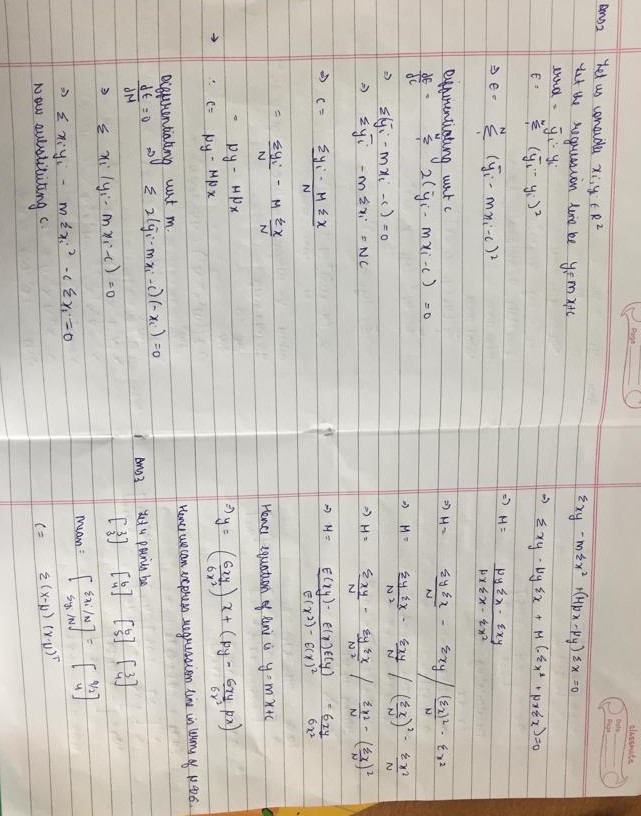 Page
classmate
Date
Page
Ans 2
Let us consider xi, yi ∈ R²
Let the regression line be yi = m xi + c
error = ȳi - yi
E = Σ₁ᴺ (ȳi - yi)²
⇒ E = Σ₁ᴺ (ȳi - mxi - c)²
Differentiating wrt c
∂E/∂c = Σ₁ᴺ 2(ȳi - mxi - c) = 0
⇒ Σ(ȳi - mxi - c) = 0
⇒ Σȳi - mΣxi = NC
⇒ C = (Σyi - MΣx)/N
= Σyi/N - M Σx/N
= μy - Mμx
→ ∴ C = μy - Mμx
Differentiating wrt m.
∂E/∂M = 0 ⇒ Σ 2(ȳi - mxi - c)(-xi) = 0
⇒ Σ xi(yi - mxi - c) = 0
⇒ Σxiyi - mΣxi² - cΣxi = 0
Now substituting c.
Σxy - mΣx² + (Mμx - μy) Σx = 0
⇒ Σxy - μyΣx + M(-Σx² + μxΣx) = 0
⇒ M = (μyΣx - Σxy)/(μxΣx - Σx²)
⇒ M = ΣyΣx/N - Σxy / (Σx)²/N - Σx²
⇒ M = ΣyΣx/N² - Σxy/N / (Σx/N)² - Σx²/N
⇒ M = Σxy/N - ΣyΣx/N² / Σx²/N - (Σx/N)²
⇒ M = (E(xy) - E(x)E(y))/(E(x²) - E(x)²) = σxy/σx²
Hence equation of line is y = mx + c
⇒ y = (σxy/σx²) x + (μy - σxy/σx² μx)
Hence we can express regression line in terms of μ & σ.
Ans 3 Let 4 points be
[3 3] [6 4] [6 5] [3 4]
mean = [Σxi/N Σyi/N] = [9/2 4]
C = Σ(x-μ)(x-μ)ᵀ